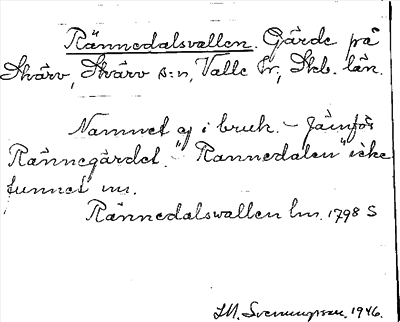 Rännedalsvallen. Gärde på
Skärv, Skärv s:n, Valle hr, Skb. län.
Namnet ej i bruk. – Jämför
Rännegärdet. "Rannedalen" icke
funnet nu.
Rännedalswallen lm. 1798 S
I.M. Svenningsson. 1946.